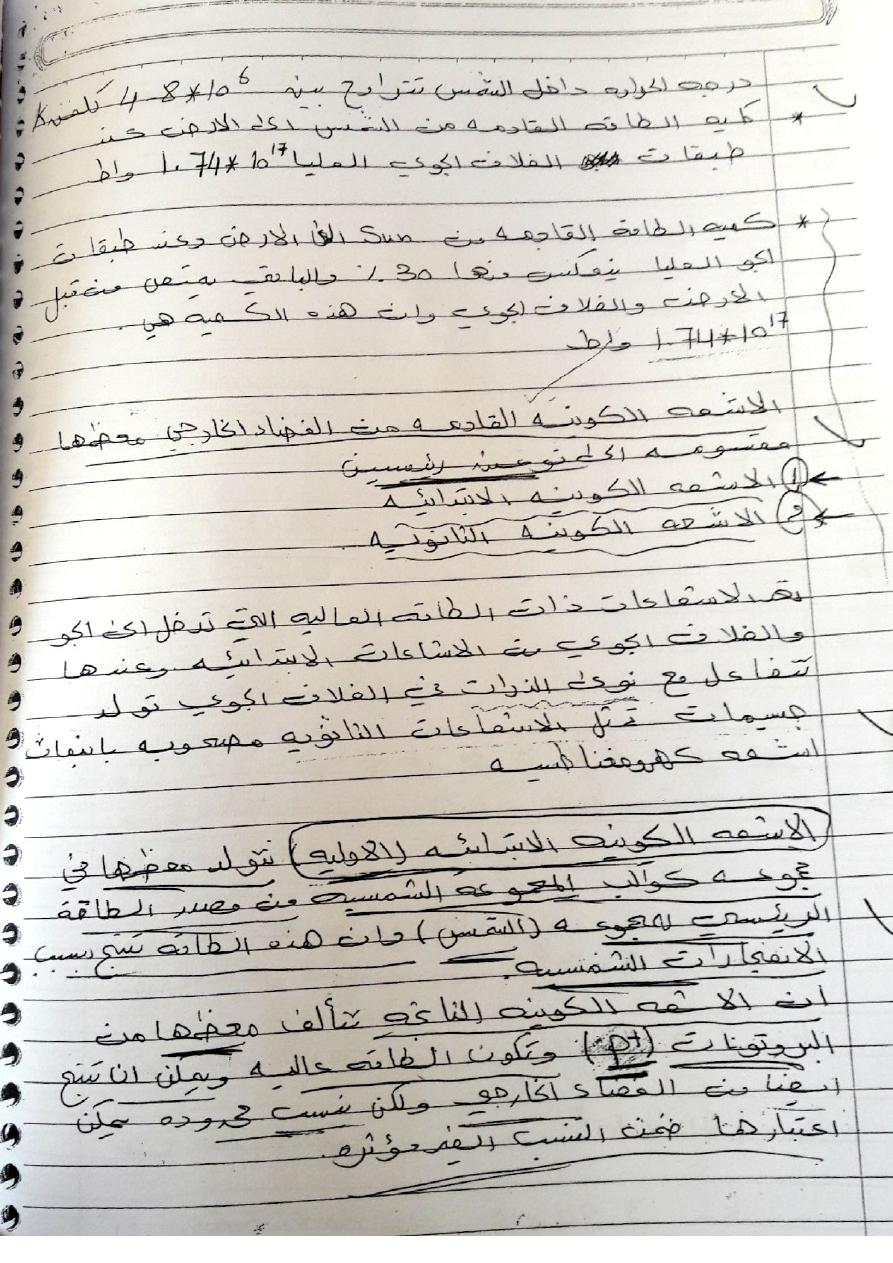 درجه الحراره داخل الشمس تتراوح بين 4-8*10^6 كلفن K
* كميه الطاقه القادمه من الشمس الى الارض عند
طبقات الغلاف الجوي العليا 1.74*10^17 واط
* كميه الطاقة القادمه من Sun الى الارض وعند طبقات
الجو العليا ينعكس منها 30% والباقي يمتص من قبل
الارض والغلاف الجوي وان هذه الكميه هي.
1.74*10^17 واط
الاشعه الكونيه القادمه من الفضاء الخارجي معظمها
مقسومه الى نوعين رئيسين
① الاشعه الكونيه الابتدائيه
② الاشعه الكونيه الثانويه
الاشعاعات ذات الطاقه العاليه التي تدخل الى الجو
والغلاف الجوي من الاشاعات الابتدائيه وعندها
تتفاعل مع نوى الذرات في الغلاف الجوي تولد
جسيمات تمثل الاشعاعات الثانويه مصحوبه بانبعاث
اشعه كهرومغناطيسيه
الاشعه الكونيه الابتدائيه (الاوليه) تتولد معظمها في
مجموعه كواكب المجموعه الشمسيه من مصدر الطاقة
الرئيسي للمجموعه (الشمس) وان هذه الطاقه تنتج بسبب
الانفجارات الشمسيه.
ان الاشعه الكونيه الناتجه تتألف معظمها من
البروتونات (P+) وتكون الطاقه عاليه ويمكن ان تنتج
ايضا من الفضاء الخارجي ولكن بنسب محدوده يمكن
اعتبارها ضمن النسب الغير مؤثره.